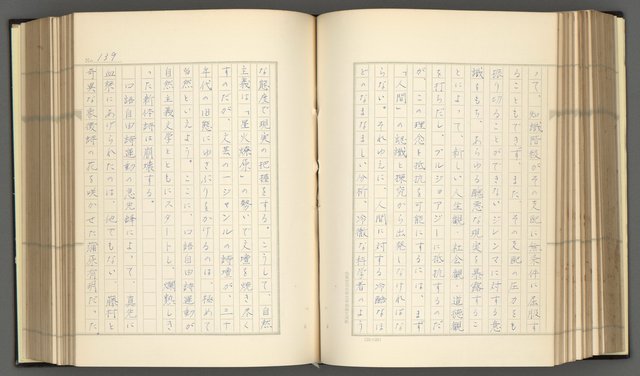 って、知識階級がその支配に無条件に屈服す
ることもできず、また、その支配の圧力をも
振り切ることもできないジレンマに対する意
識をもち、あらゆる醜悪な現実を暴露するこ
とによって、新しい人生観・社会観・道徳観
を打ちだし、ブルジョアジーに抵抗するのだ
が、この理念と抵抗を可能にするには、まず
「人間」の認識と探究から出発しなければな
らない。それゆえに、人間に対する冷酷なほ
どのなまなましい分析、冷徹な科学者のよう
な態度で現実の把握をする。こうして、自然
主義は「星火燎原」の勢いで文壇を焼き尽く
すのだが、文芸の一ジャンルの詩壇が、三十
年代の旧態にゆさぶりをかけるのは、極めて
当然といえよう。ここに、口語自由詩運動が
自然主義文学とともにスタートし、爛熟しき
った新体詩は崩壊する。
口語自由詩運動の急先鋒によって、真先に
血祭にあげられたのは、他でもない、藤村と
奇異な象徴詩の花を咲かせた蒲原有明だった。
No. 139